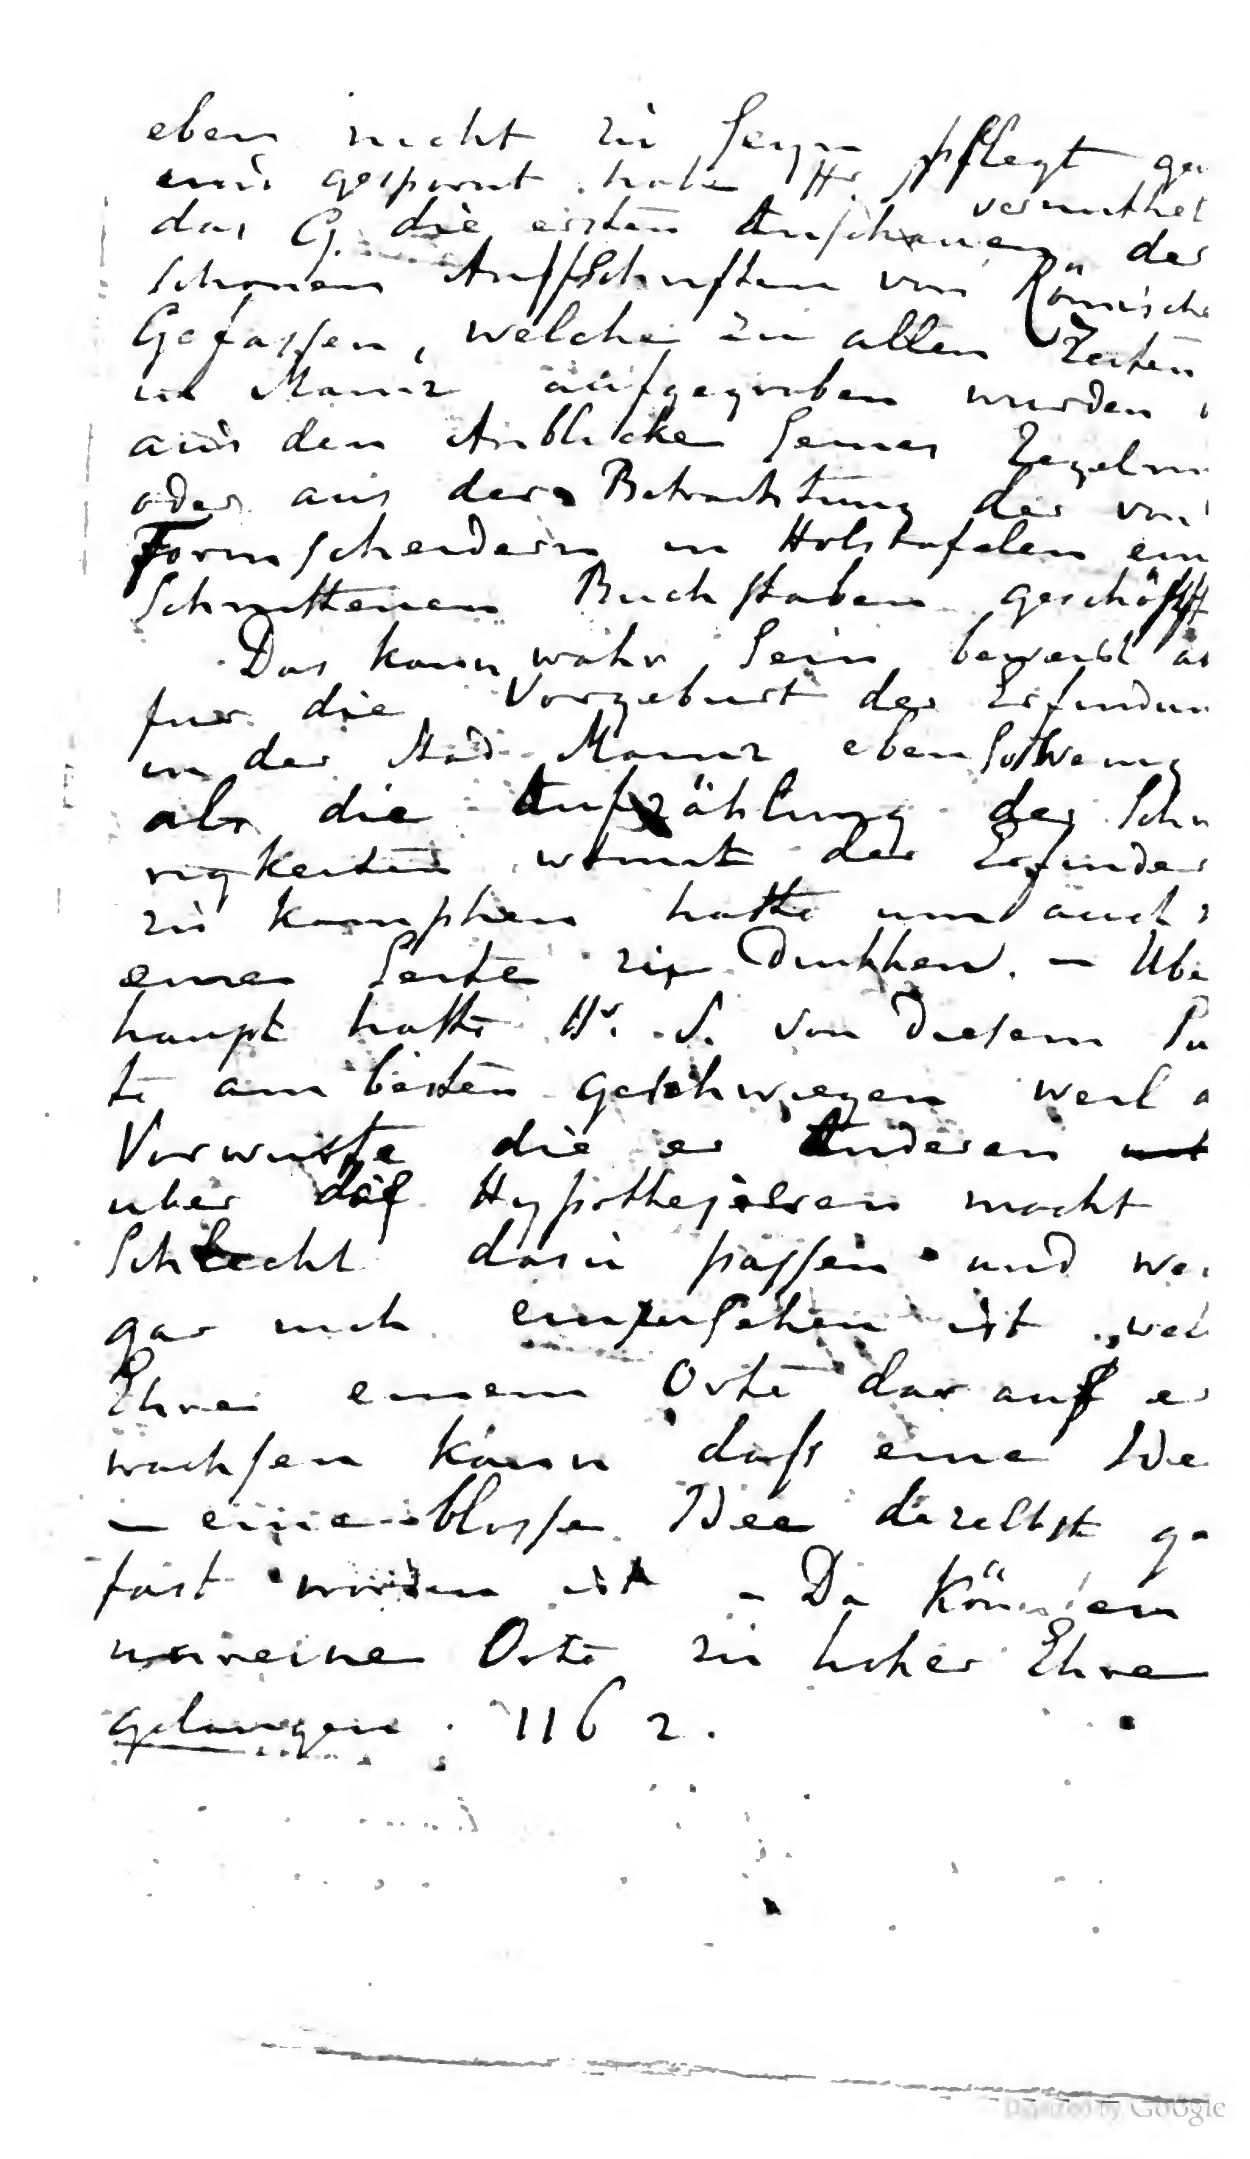 eben nicht zu seyn pflegt
gespornt habe Hr
vermuthet
das G. die ersten Anschauen der
schonen Auffschriften von Römische
Gefassen, welche zu allen Zeiten
in Mainz aufgegraben wurden
aus den Anblicke seines
oder aus der Betrachtung der von
Formscheidern in Holstafelen ein
schnittenen Buchstaben geschöpft
Das kann wahr sein beweist
fur die Vorgeburt der Erfindun
in der Stad Mainz eben so wenig
als die Aufzählung der Schw
rigkeiten womit der Erfinder
zu kamphen hatte und auch
eine Seite zu Drukken. - Ube
haupt hatte Hr. S. von diesem Pu
te am besten geschwiegen weil
Vorwurfe die er Anderen
uber das Hypothesieren macht
Schlecht dazu passen und
gar nich einzusehen ist
Ehre einem Orte darauf er
wachsen kann dass eine Ide
- eine blosse Idee dazelbst ge
fast worden ist - Da könnten
Orte zu hoher Ehre
gelangen. 1162.
Digitized by Google